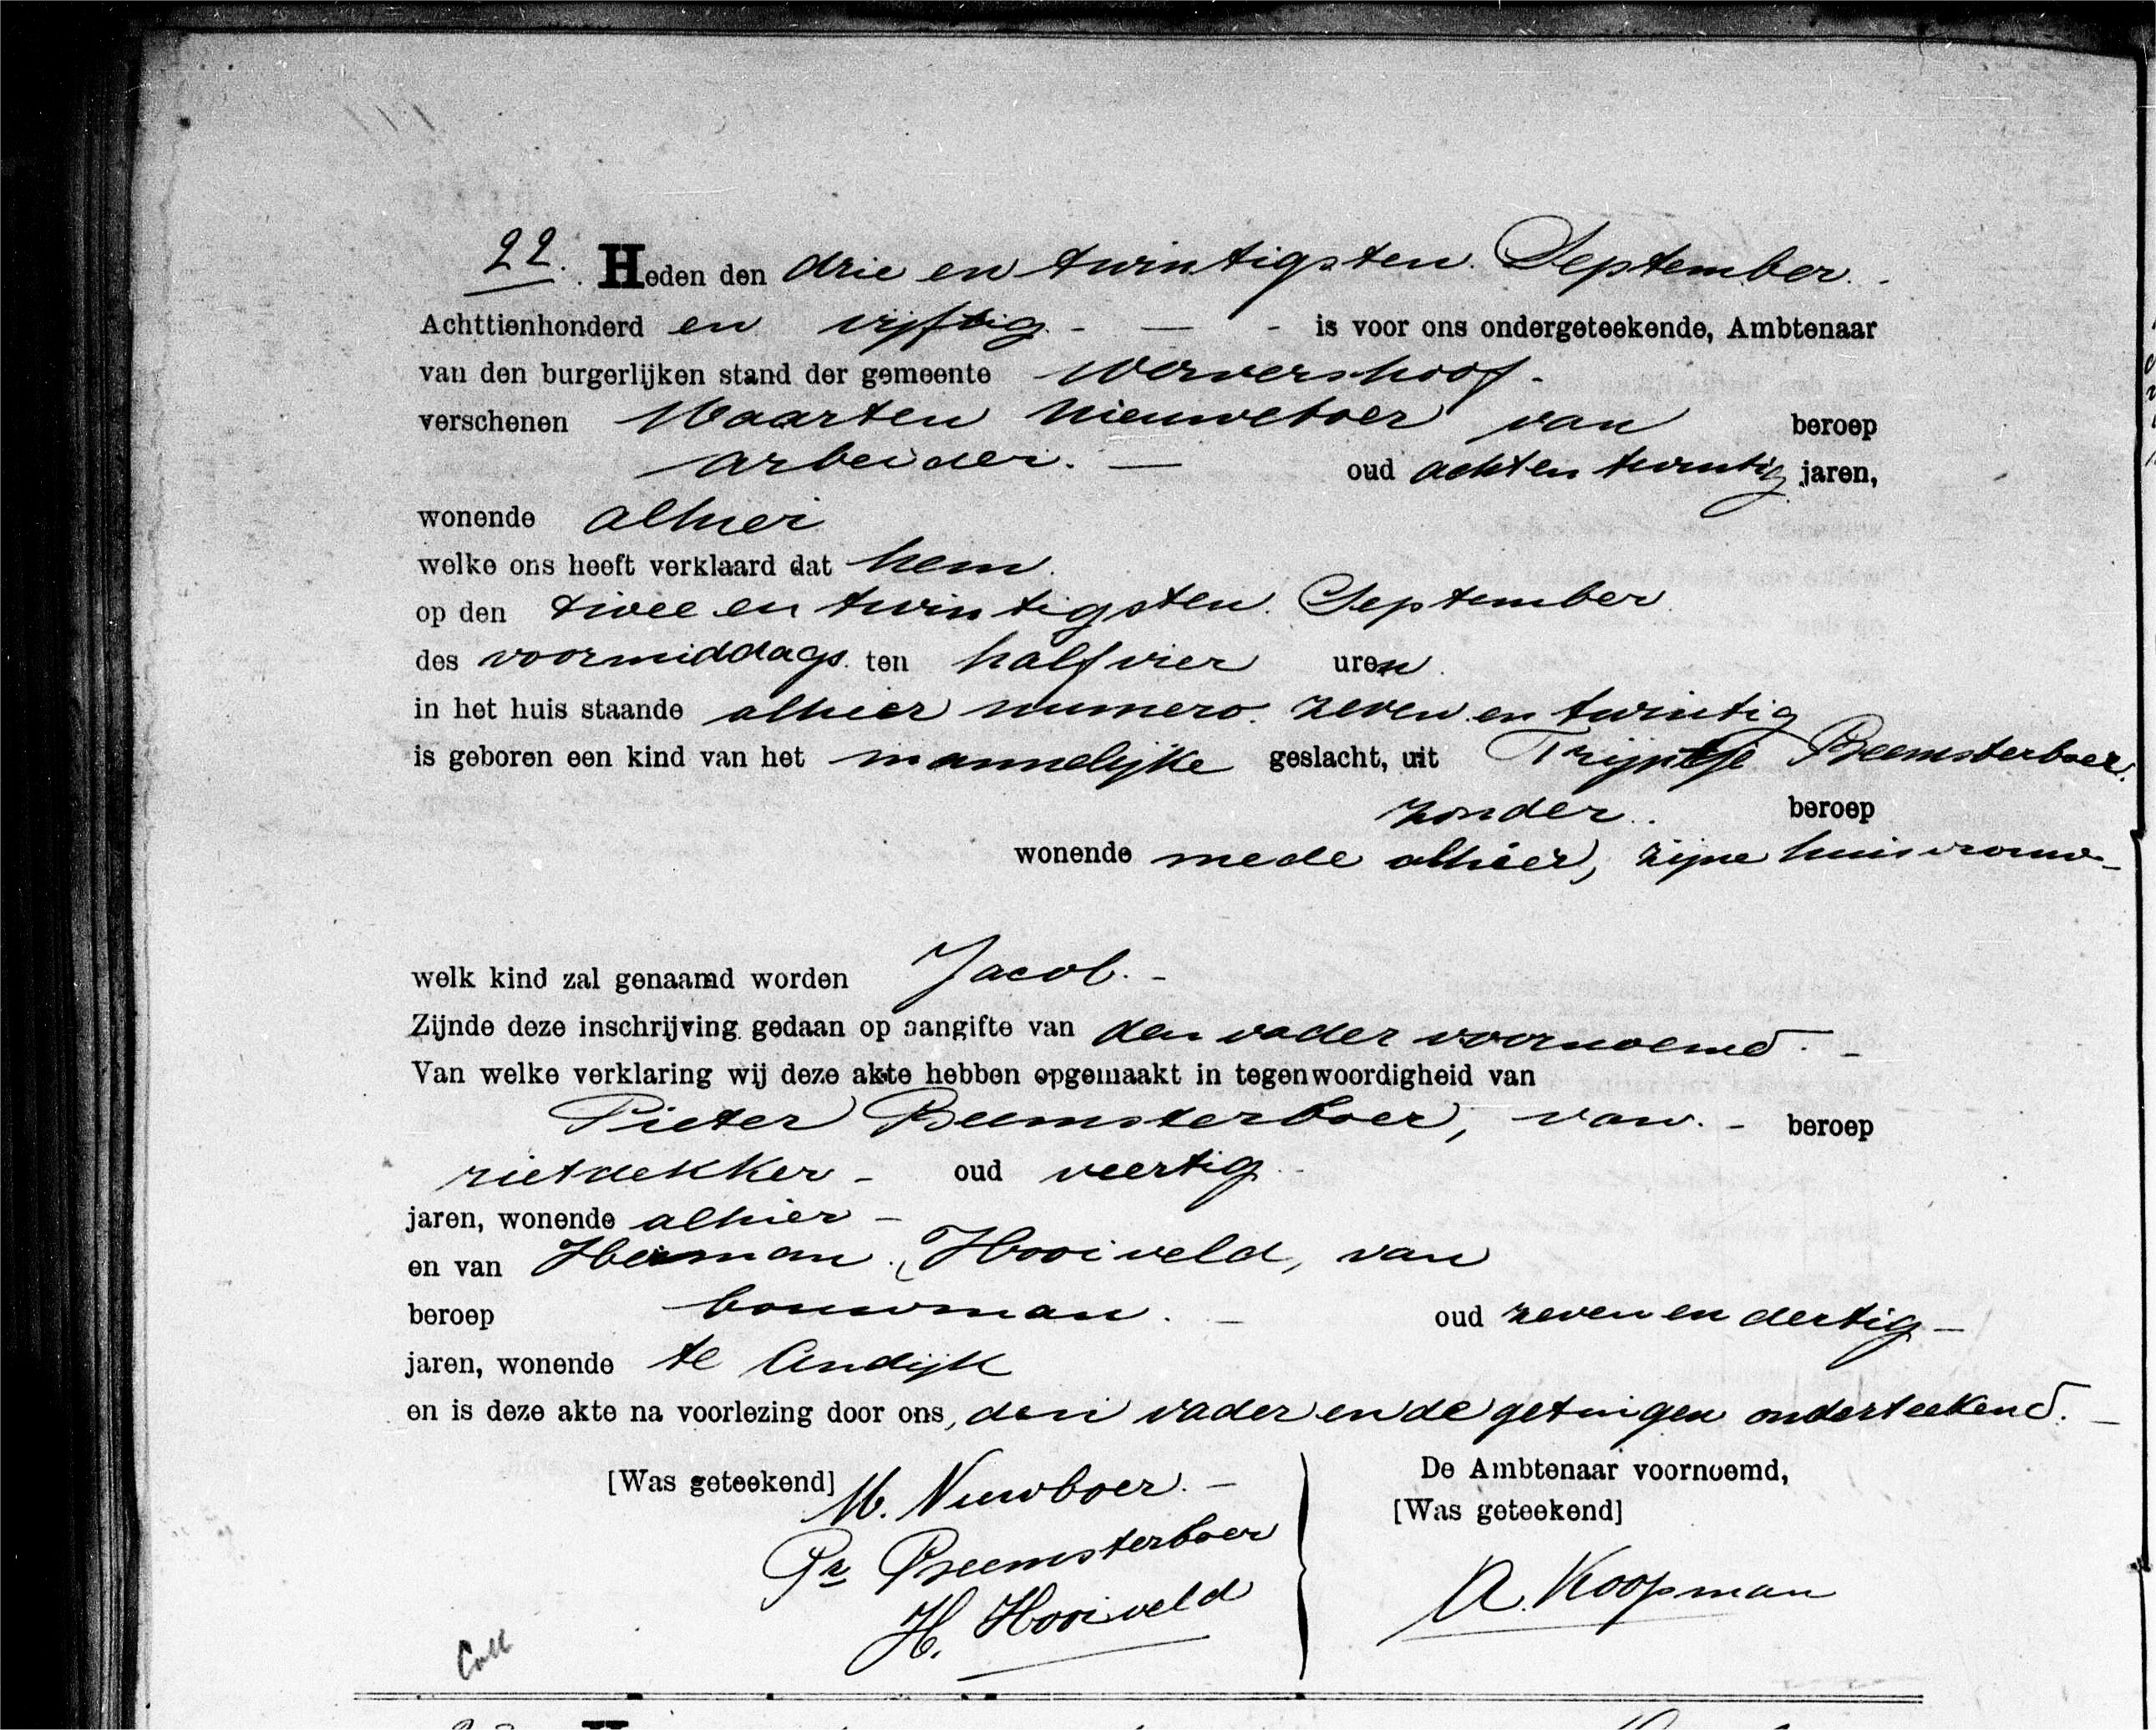 22. Heden den drie en twintigsten September.
Achttienhonderd en vijftig - — - is voor ons ondergeteekende, Ambtenaar
van den burgerlijken stand der gemeente Wervershoof.
verschenen Maarten Nieuweboer van beroep
arbeider. — oud achten twintig jaren,
wonende alhier
welke ons heeft verklaard dat hem
op den twee en twintigsten September
des voormiddags ten half vier uren
in het huis staande alhier numero zeven en twintig
is geboren een kind van het mannelijke geslacht, uit Trijntje Beemsterboer.
zonder. beroep
wonende mede alhier, zijne huisvrouw—
welk kind zal genaamd worden Jacob. -
Zijnde deze inschrijving gedaan op aangifte van den vader voornoemd. -
Van welke verklaring wij deze akte hebben opgemaakt in tegenwoordigheid van
Pieter Beemsterboer, van. - beroep
rietdekker - oud veertig
jaren, wonende alhier -
en van Herman Hooiveld, van
beroep bouwman. — oud zeven en dertig —
jaren, wonende te Andijk
en is deze akte na voorlezing door ons, den vader en de getuigen onderteekend. —
[Was geteekend] M. Nieuwboer. -
Pr Beemsterboer
H. Hooiveld
De Ambtenaar voornoemd,
[Was geteekend]
A. Koopman
Coll